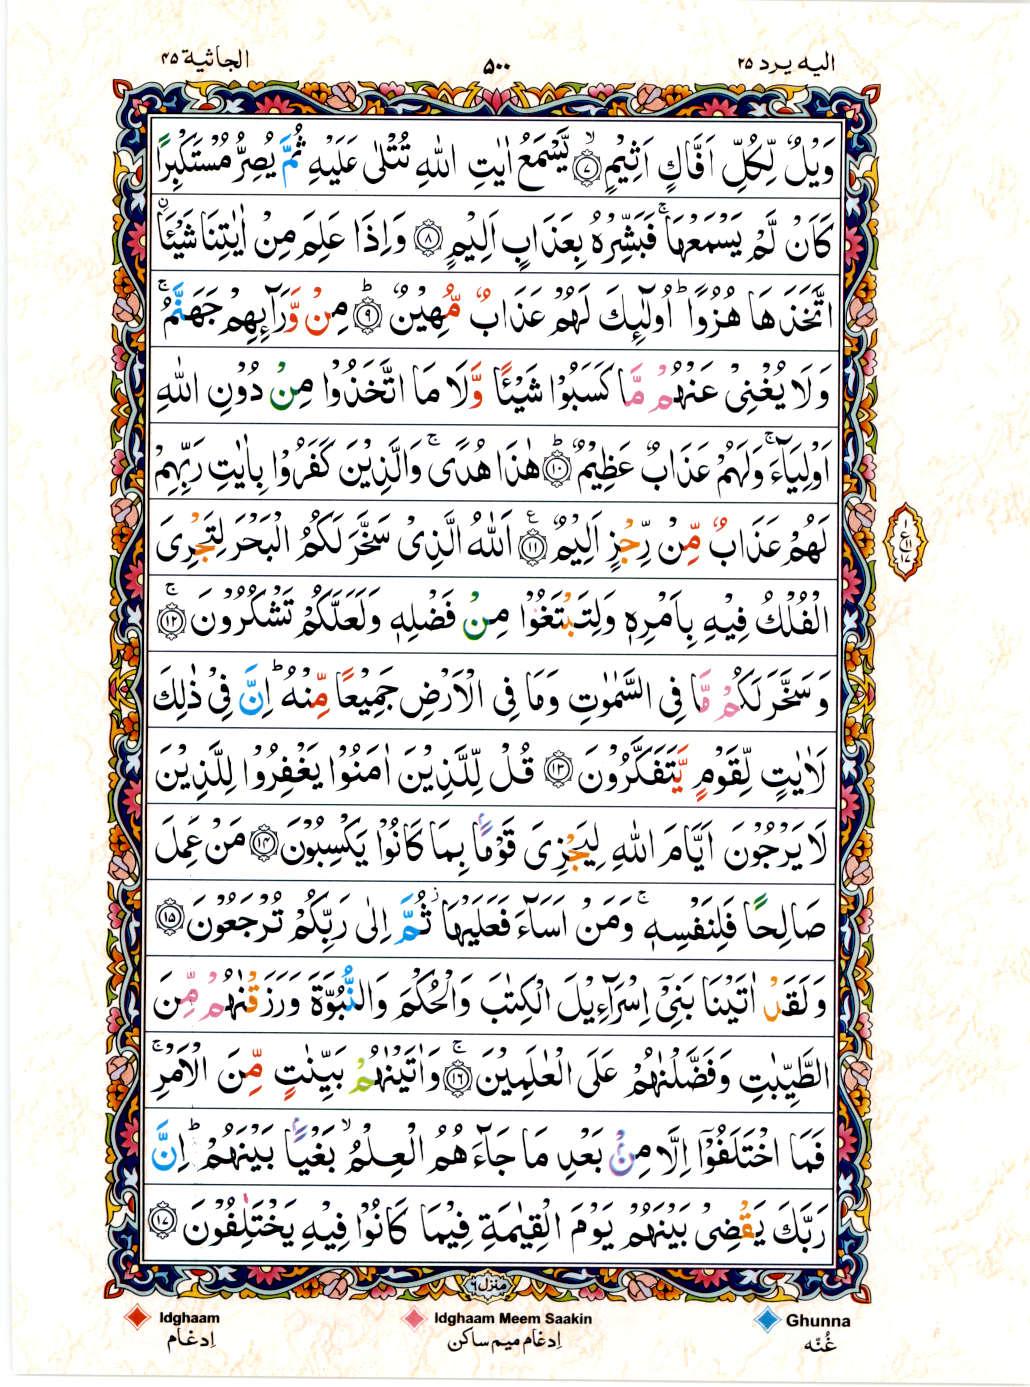 الجاثیة ۴۵
۵۰۰
الیه یرد ۲۵
وَیْلٌ لِّكُلِّ اَفَّاكٍ اَثِیْمٍ ۙ﴿۷﴾ یَّسْمَعُ اٰیٰتِ اللّٰهِ تُتْلٰی عَلَیْهِ ثُمَّ یُصِرُّ مُسْتَكْبِرًا
كَاَنْ لَّمْ یَسْمَعْهَا ۚ فَبَشِّرْهُ بِعَذَابٍ اَلِیْمٍ ﴿۸﴾ وَاِذَا عَلِمَ مِنْ اٰیٰتِنَا شَیْـًٔا
اتَّخَذَهَا هُزُوًا ؕ اُولٰٓئِكَ لَهُمْ عَذَابٌ مُّهِیْنٌ ؕ﴿۹﴾ مِنْ وَّرَآئِهِمْ جَهَنَّمُ ۚ
وَلَا یُغْنِیْ عَنْهُمْ مَّا كَسَبُوْا شَیْـًٔا وَّلَا مَا اتَّخَذُوْا مِنْ دُوْنِ اللّٰهِ
اَوْلِیَآءَ ۚ وَلَهُمْ عَذَابٌ عَظِیْمٌ ؕ﴿۱۰﴾ هٰذَا هُدًی ۚ وَالَّذِیْنَ كَفَرُوْا بِاٰیٰتِ رَبِّهِمْ
لَهُمْ عَذَابٌ مِّنْ رِّجْزٍ اَلِیْمٌ ﴿۱۱﴾ اَللّٰهُ الَّذِیْ سَخَّرَ لَكُمُ الْبَحْرَ لِتَجْرِیَ
الْفُلْكُ فِیْهِ بِاَمْرِهٖ وَلِتَبْتَغُوْا مِنْ فَضْلِهٖ وَلَعَلَّكُمْ تَشْكُرُوْنَ ۚ﴿۱۲﴾
وَسَخَّرَ لَكُمْ مَّا فِی السَّمٰوٰتِ وَمَا فِی الْاَرْضِ جَمِیْعًا مِّنْهُ ؕ اِنَّ فِیْ ذٰلِكَ
لَاٰیٰتٍ لِّقَوْمٍ یَّتَفَكَّرُوْنَ ﴿۱۳﴾ قُلْ لِّلَّذِیْنَ اٰمَنُوْا یَغْفِرُوْا لِلَّذِیْنَ
لَا یَرْجُوْنَ اَیَّامَ اللّٰهِ لِیَجْزِیَ قَوْمًۢا بِمَا كَانُوْا یَكْسِبُوْنَ ﴿۱۴﴾ مَنْ عَمِلَ
صَالِحًا فَلِنَفْسِهٖ ۚ وَمَنْ اَسَآءَ فَعَلَیْهَا ؗ ثُمَّ اِلٰی رَبِّكُمْ تُرْجَعُوْنَ ﴿۱۵﴾
وَلَقَدْ اٰتَیْنَا بَنِیْۤ اِسْرَآءِیْلَ الْكِتٰبَ وَالْحُكْمَ وَالنُّبُوَّةَ وَرَزَقْنٰهُمْ مِّنَ
الطَّیِّبٰتِ وَفَضَّلْنٰهُمْ عَلَی الْعٰلَمِیْنَ ۚ﴿۱۶﴾ وَاٰتَیْنٰهُمْ بَیِّنٰتٍ مِّنَ الْاَمْرِ ۚ
فَمَا اخْتَلَفُوْۤا اِلَّا مِنْۢ بَعْدِ مَا جَآءَهُمُ الْعِلْمُ ۙ بَغْیًۢا بَیْنَهُمْ ؕ اِنَّ
رَبَّكَ یَقْضِیْ بَیْنَهُمْ یَوْمَ الْقِیٰمَةِ فِیْمَا كَانُوْا فِیْهِ یَخْتَلِفُوْنَ ﴿۱۷﴾
منزل ۶
Idghaam
اِدغام
Idghaam Meem Saakin
اِدغام میم ساکن
Ghunna
غُنّه